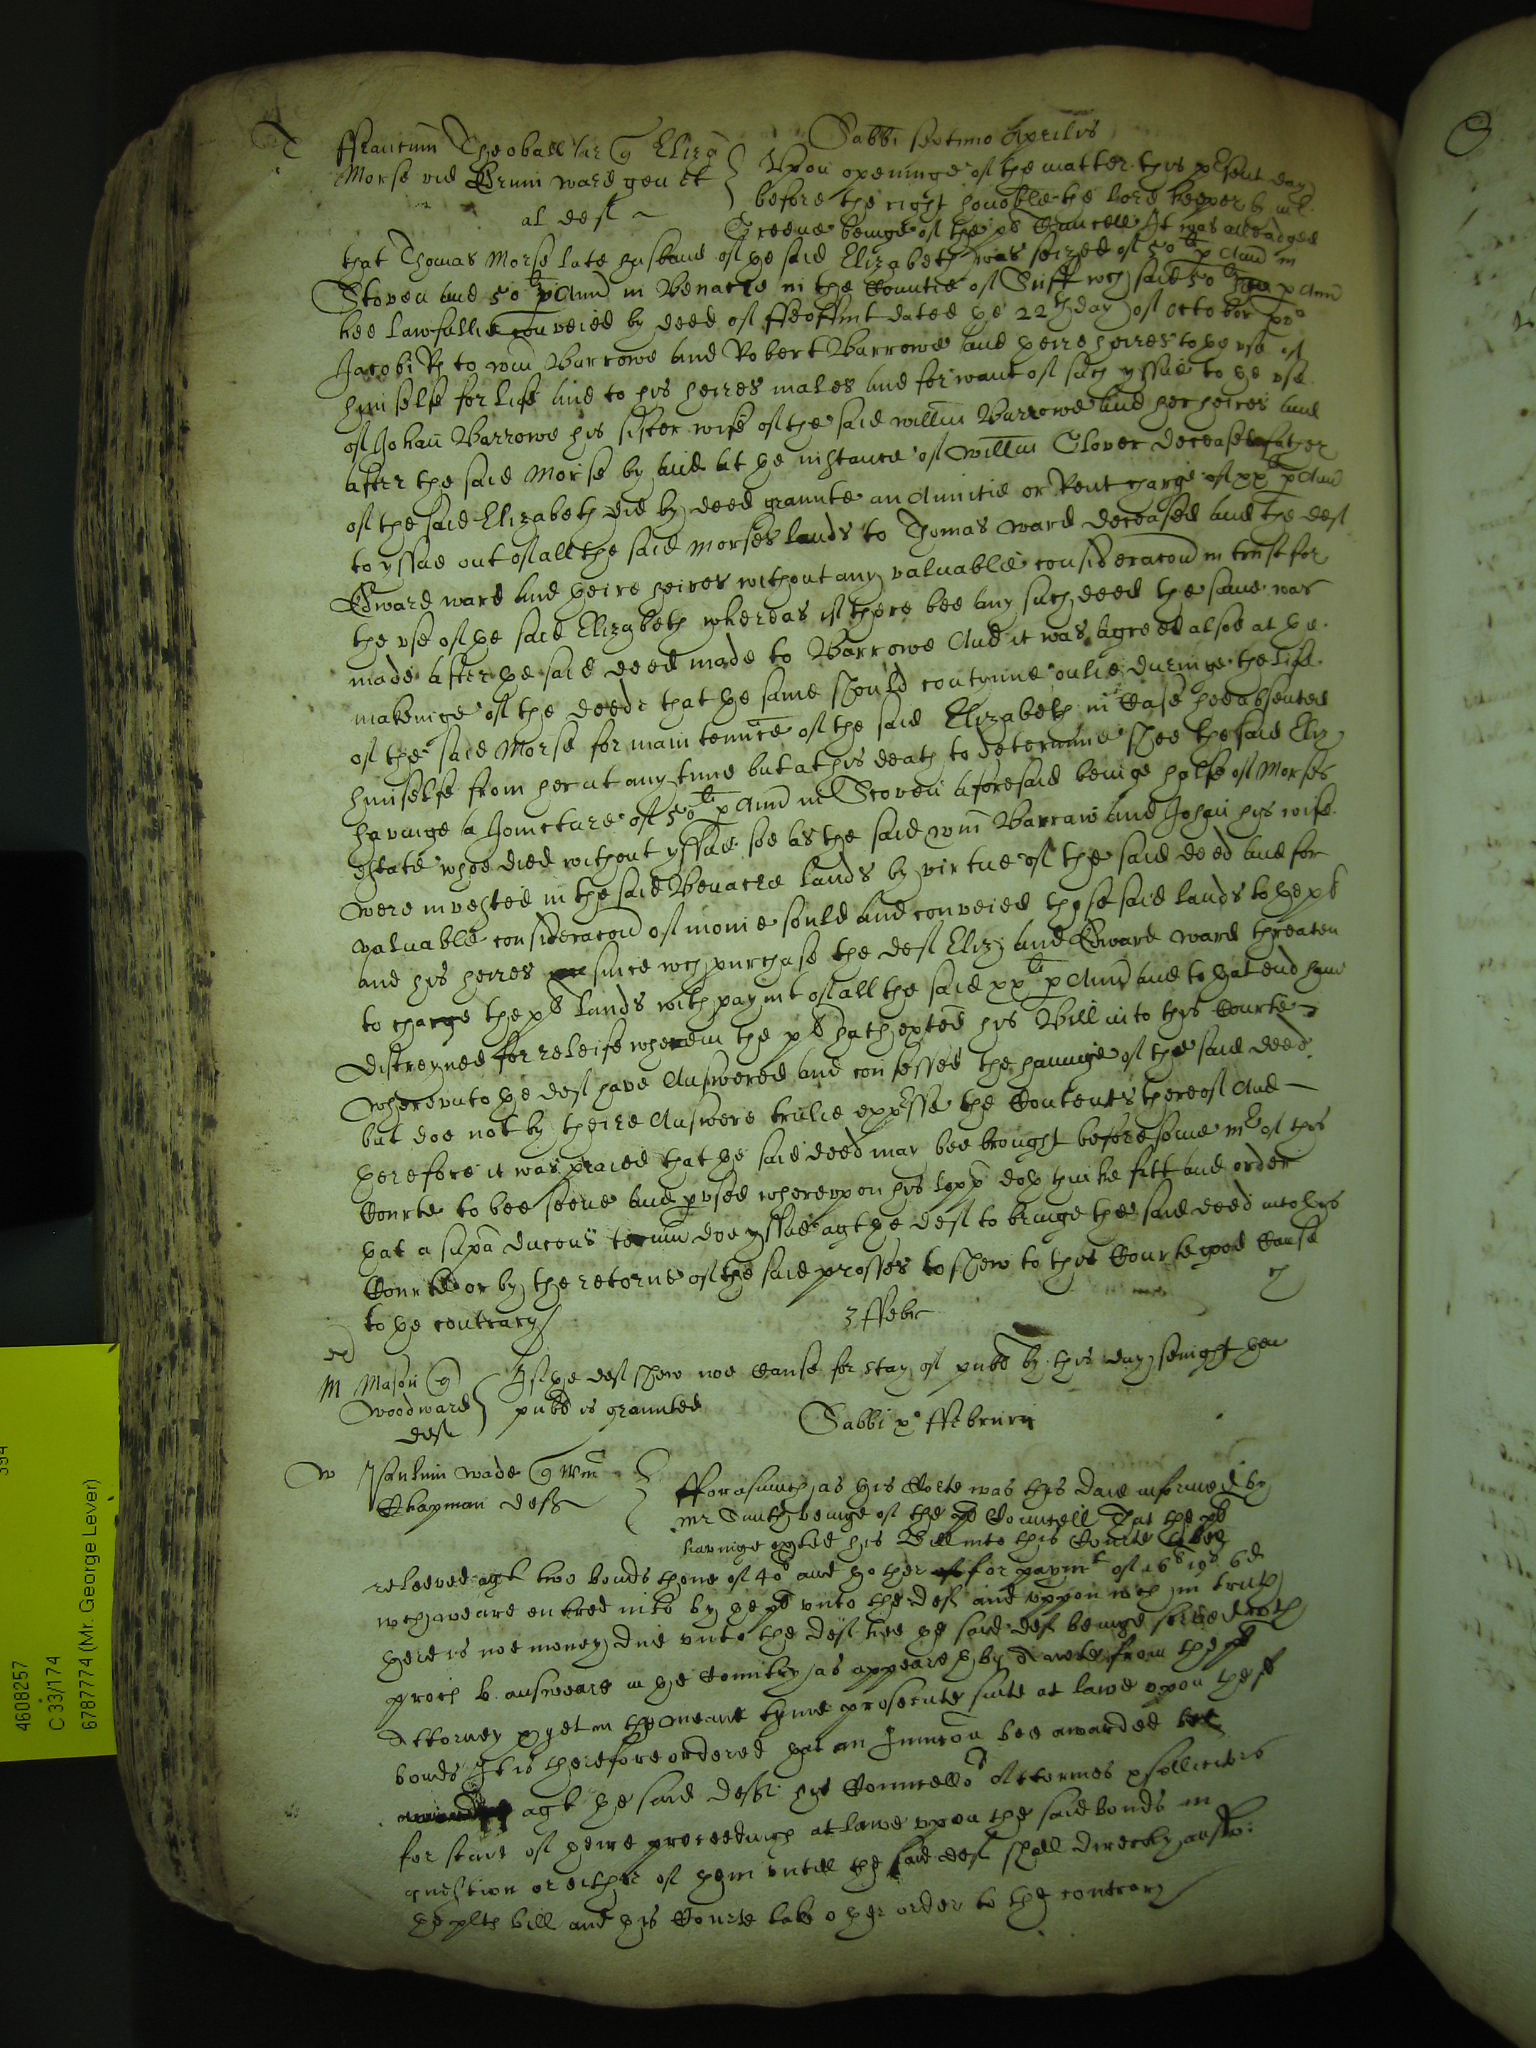 Sabbi septimo Aprilis
T ffranciscus Theoball ar q Eliza
Morse vid Edrum ward gen et
al def
Upon openinge of the matter this present day
before the right honoble the lord keeper by mr
Greene beinge of the pl Councell It was alleadged
that Thomas Morse late husband of ye said Elizabeth was seized of 50 li p Ann in
Stoven and 50 li p Ann in Benacre in the Countie of Suff wch said 50 li p Ann
hee lawfullie conveied by deed of ffeoffmt dated ye 22th day of October pro
Jacobi R to wm Barrowe and Robert Barrowe and yeire heires to ye use of
himselfe for life and to his heires males and for want of such yssue to ye use
of Johan Barrowe his sister wife of the said willm Barrowe and her heires and
after the said Morse by and at ye instance of willm Clover deceased father
of the said Elizabeth did by deed graunte an Annitie or Rent charge of xx li p Ann
to yssue out of all the said Morses lands to Thomas ward deceased and the def
Edward ward and yeire heires without any valuable consideracon in trust for
the use of ye said Elizabeth whereas if there bee any such deed the same was
made after ye said deed made to Barrowe And it was agreed alsoe at ye
makeinge of the deede that ye same should contynue onlie duringe the life
of the said Morse for maintennce of the said Elizabeth in case hee absented
himselfe from her at any time but at his death to determine shee the said Eliz
havinge a Joincture of 50 li p Ann in Stoven aforesaid beinge halfe of Morses
estate whoe died without yssue soe as the said wm Barraw and Johan his wife
were invested in the said Benacre lands by virtue of the said deed and for
valuable consideracon of monie sould and conveied those said lands to ye pl
and his heires since wch purchase the def Eliz and Edward ward threaten
to charge the pl lands with paymt of all the said xx li p Ann and to yat end have
distreyned for releife wherein the pl hath exted his Bill into this Courte
wherevnto ye def have Answered and confessed the havinge of the said deed
but doe not by theire Answere trulie expresse the Contents thereof And
therefore it was praied that ye said deed may bee brought before some mr of this
Courte to bee seene and pvsed wherevpon his lopp doth thinke fitt and order
yat a supa ducens tecum doe yssue agt ye def to bringe the said deed into this
Courte or by the retorne of the said prosses to shew to this Courte good Cause
to ye contrary
3 ffebr
M Mason q
Woodward
def
If ye def shew noe Cause for stay of publ by this day senight yen
publ is graunted
Sabbi po ffebruary
W Wade q Wm
Chapman def
fforasmuch as this Corte was this daie informed by
mr Smith beinge of the pl Councell That the pl
havinge exted his Bill into this Courte to bee
releeved agt two bonds thone of 40 li and ye other for paymt of 16 li 19 s 6 d
wch weare entred into by ye pl vnto the def and vppon wch in truth
there is noe money due vnto the def hee ye said def beinge served with
proces to answeare in ye Countrey as appeareth by a note from the pl
Attorney yet in the meane tyme prosecute suite at lawe vpon these
bonds It is therefore ordered yat an Iniunccon bee awarded
agt ye said def his Councello Attornies & solliciters
for staie of yeire proceedings at lawe vpon the said bonds in
question or either of them vntill the said def shall directly answ:
ye plts bill and this Courte take other order to the contrary
4608257
C 33/174
6787774 (Mr. George Lever)